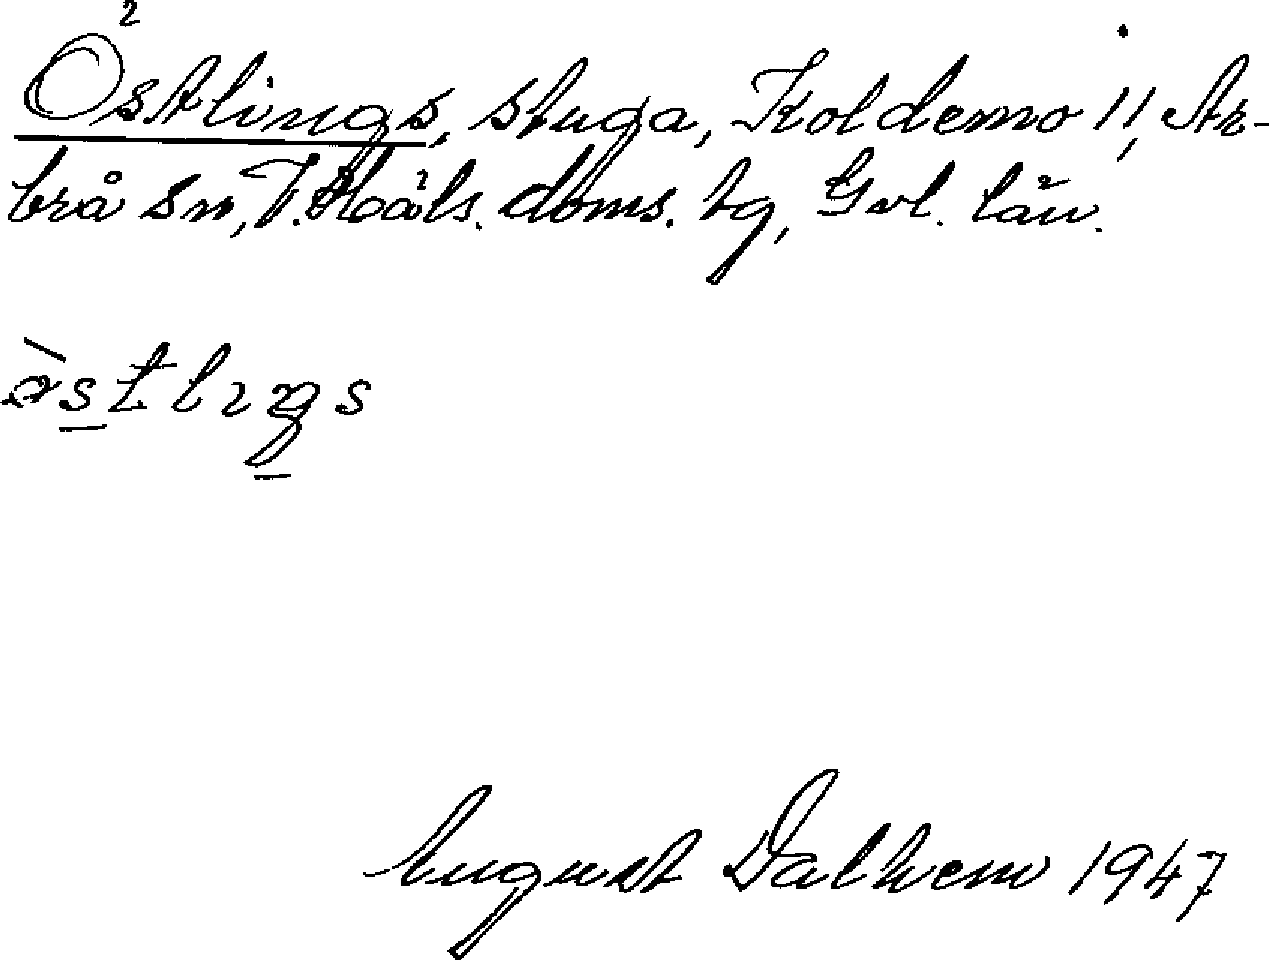 Östlings, stuga, Koldemo 11, Ar-
brå sn, V. Häls. doms. tg, Gvl. län.
östlıŋs
August Dalhem 1947